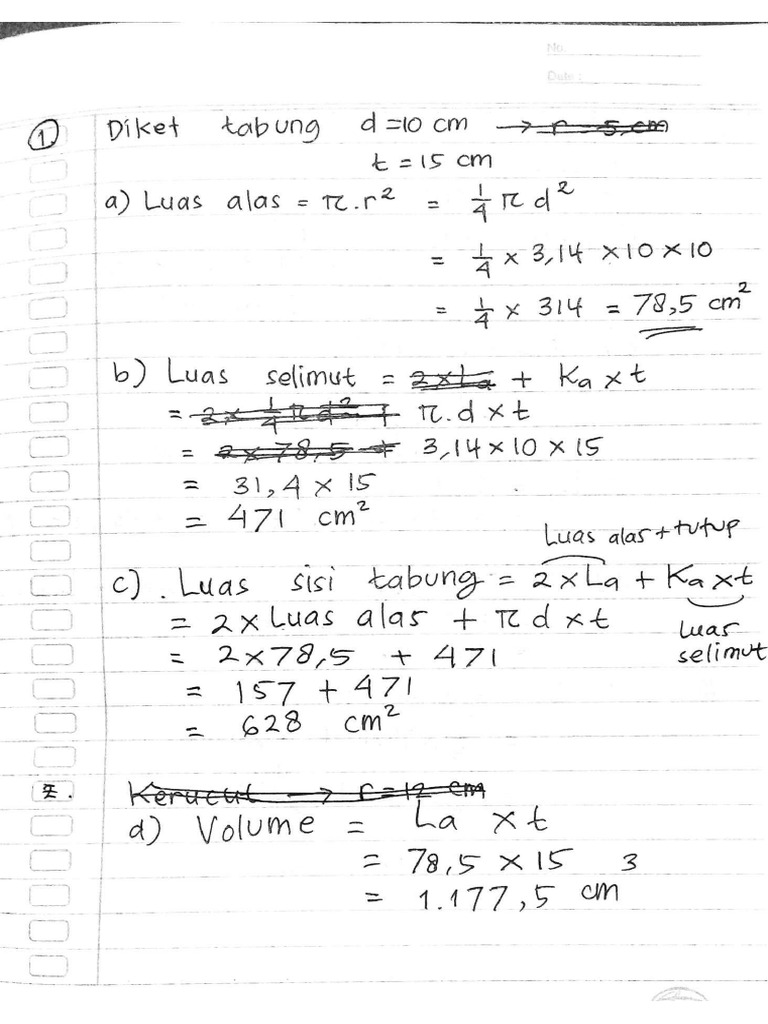 No.
Date :
1. Diket tabung d = 10 cm → r = 5 cm
t = 15 cm
a) Luas alas = π . r² = 1/4 π d²
= 1/4 × 3,14 × 10 × 10
= 1/4 × 314 = 78,5 cm²
b) Luas selimut = 2 × La + Ka × t
= 2 × 1/4 π d² + π . d × t
= 2 × 78,5 + 3,14 × 10 × 15
= 31,4 × 15
= 471 cm²
Luas alas + tutup
c) . Luas sisi tabung = 2 × La + Ka × t
= 2 × Luas alas + π d × t
Luas
selimut
= 2 × 78,5 + 471
= 157 + 471
= 628 cm²
2. Kerucut → r = 12 cm
d) Volume = La × t
= 78,5 × 15
= 1.177,5 cm³